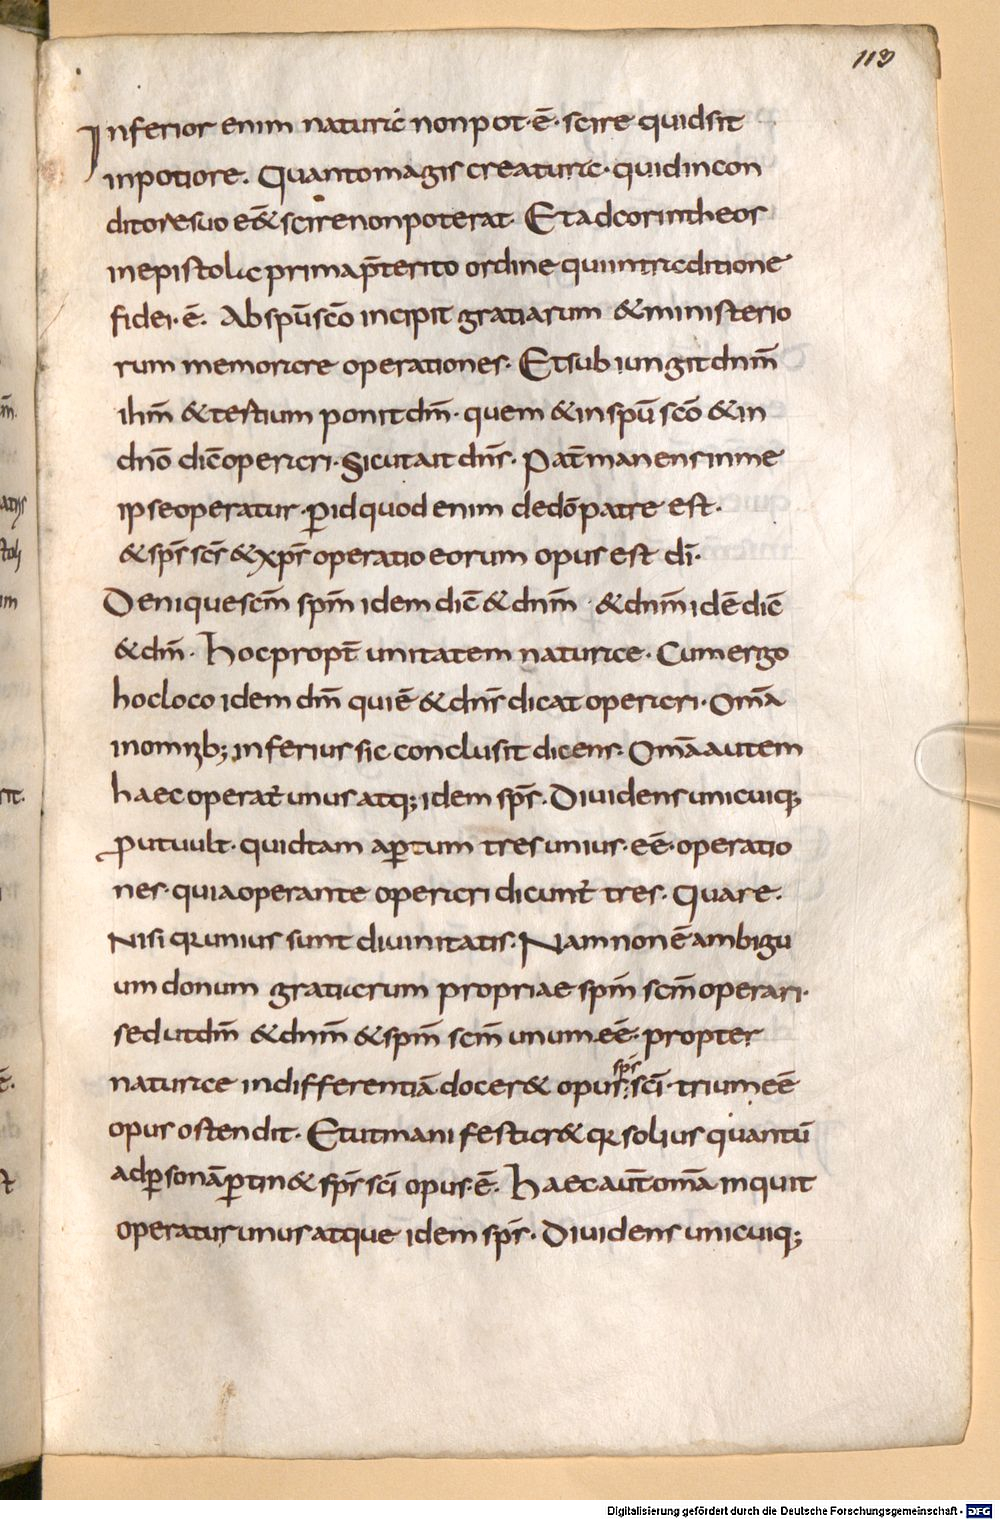 113
Inferior enim natura nonpot·ē· scire quid sit
inpotiore. Quantomagis creatura· quidincon
ditoresuo eēt scirenonpoterat· Et adcorintheos
inepistola prima p̄terito ordine qui intraditione
fidei·ē· Ab spū scō incipit gratiarum &ministerio
rum memorare operationes· Etsubiungit dnm̄
ihm̄ &tertium ponit dm̄· quem &inspū scō &in
dnō dic̄ operari· Sicutait dnr̄· Pat̄ manens inme
ipseoperatur· p̄idquod enim dedō patre est·
&spr̄ scr̄ &xpr̄ operatio eorum opus est dī·
Denique scm̄ spm̄ idem dic̄ &dnm̄ &dnm̄ idē dic̄
&dm̄· Hoc propt̄ unitatem naturae· Cumergo
hocloco idem dm̄ quiē &dnr̄ dicat operari· Omā
inomnib; inferius sic conclusit dicens· Omā autem
haec operat̄ unus atq; idem spr̄· Dividens unicuiq;
p̄utvult· quid tam ap̄tum tres unius·eē·operatio
nes· quiaoperante operari dicunt̄ tres· Quare·
Nisi qr unius sunt divinitatis· Nam non ē ambigu
um donum gratiarum propriae spm̄ scm̄ operari·
sed ut dm̄ &dnm̄ &spm̄ scm̄ unum·eē· propter
spr̄
naturae indifferentiā docer& opus· scī· trium eē
opus ostendit· Et ut manifestar& qr solius quantū
adp̄sonā p̄tin& spr̄ scī opus·ē· Haec aut̄ omā inquit
operatur unus atque idem spr̄· Dividens unicuiq;
Digitalisierung gefördert durch die Deutsche Forschungsgemeinschaft - DFG